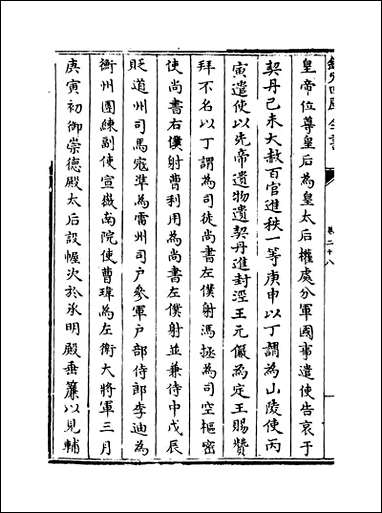 欽定四庫全書
卷二十八
皇帝位尊皇后為皇太后權處分軍國事遣使告哀于
契丹己未大赦百官進秩一等庚申以丁謂為山陵使丙
寅遣使以先帝遺物遺契丹進封涇王元儼為定王賜贊
拜不名以丁謂為司徒尚書左僕射馮拯為司空樞密
使尚書右僕射曹利用為尚書左僕射並兼侍中戊辰
貶道州司馬寇準為雷州司户參軍户部侍郎李迪為
衡州團練副使宣徽南院使曹瑋為左衛大將軍三月
庚寅初御崇德殿太后設幄次於承明殿垂簾以見輔